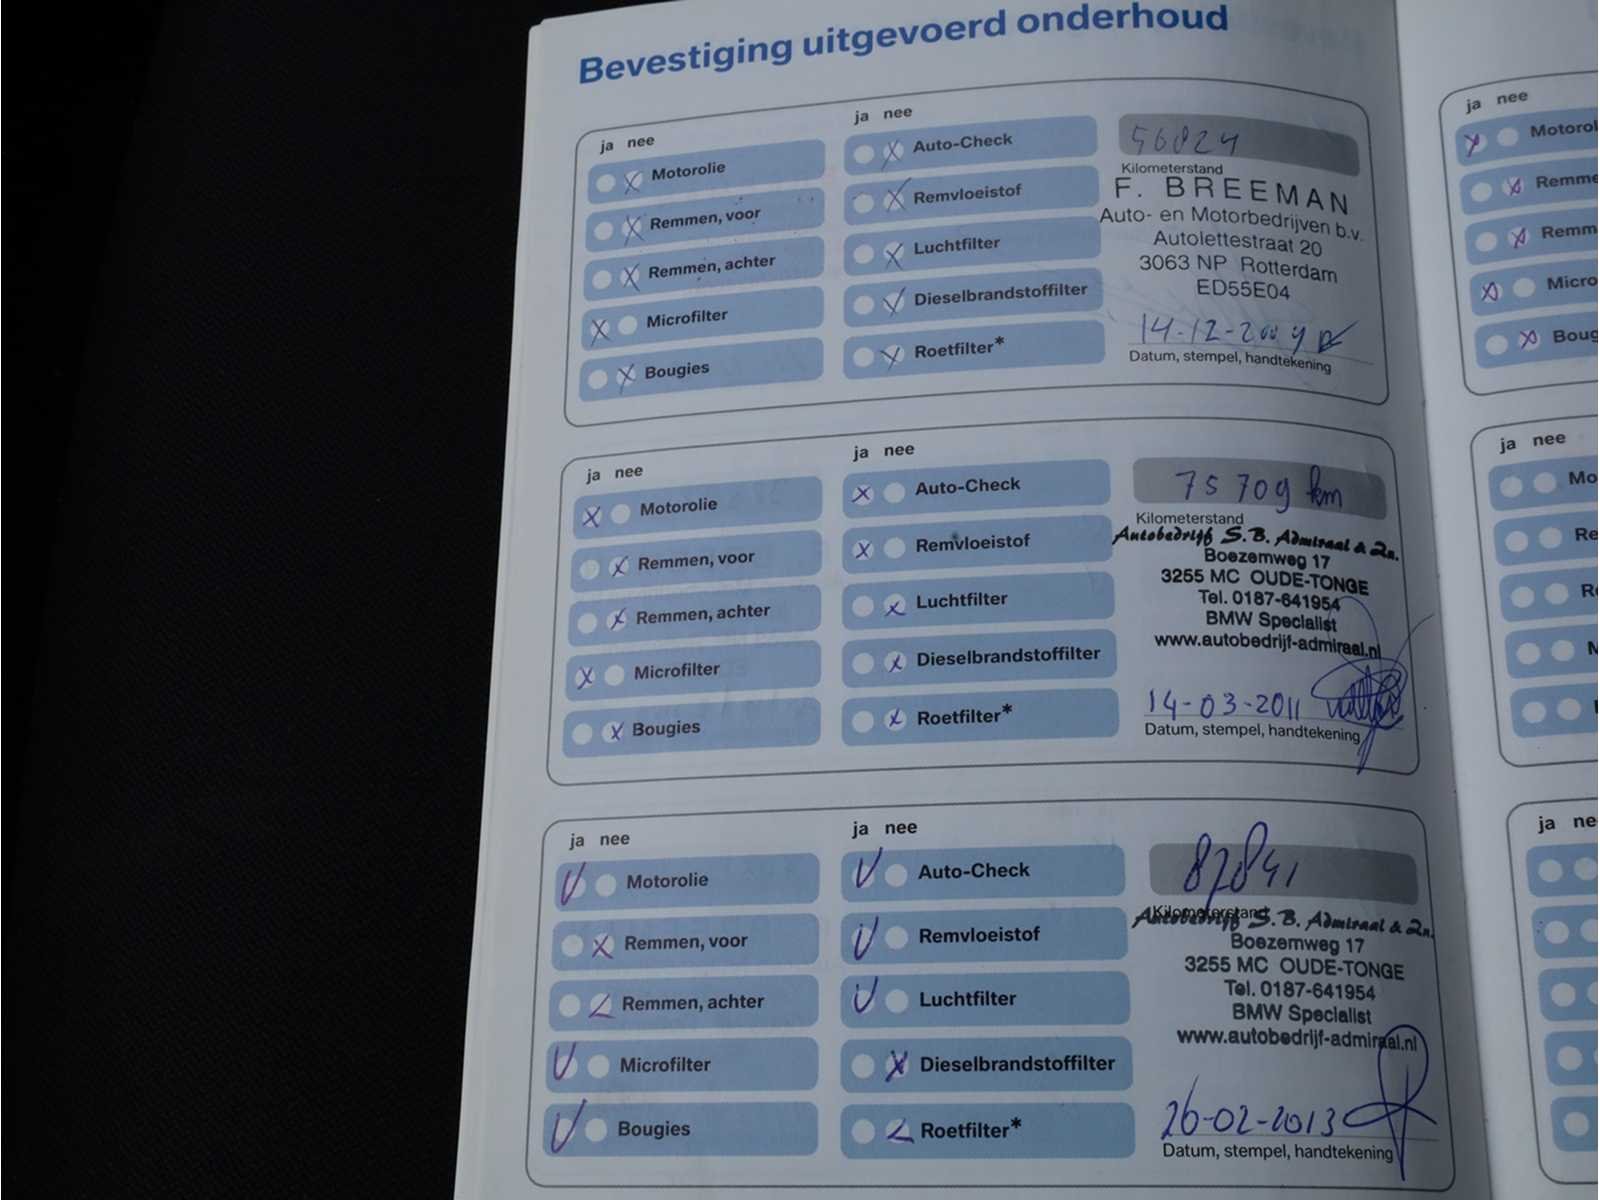 Bevestiging uitgevoerd onderhoud
ja nee
Motorolie
Remmen, voor
Remmen, achter
Microfilter
Bougies
ja nee
Auto-Check
Remvloeistof
Luchtfilter
Dieselbrandstoffilter
Roetfilter*
56824
Kilometerstand
F. BREEMAN
Auto- en Motorbedrijven b.v.
Autolettestraat 20
3063 NP Rotterdam
ED55E04
14-12-2009
Datum, stempel, handtekening
ja nee
Motorolie
Remmen, voor
Remmen, achter
Microfilter
Bougies
ja nee
Auto-Check
Remvloeistof
Luchtfilter
Dieselbrandstoffilter
Roetfilter*
75709 km
Kilometerstand
Autobedrijf S.B. Admiraal & Zn.
Boezemweg 17
3255 MC OUDE-TONGE
Tel. 0187-641954
BMW Specialist
www.autobedrijf-admiraal.nl
14-03-2011
Datum, stempel, handtekening
ja nee
Motorolie
Remmen, voor
Remmen, achter
Microfilter
Bougies
ja nee
Auto-Check
Remvloeistof
Luchtfilter
Dieselbrandstoffilter
Roetfilter*
87841
Kilometerstand
Autobedrijf S.B. Admiraal & Zn.
Boezemweg 17
3255 MC OUDE-TONGE
Tel. 0187-641954
BMW Specialist
www.autobedrijf-admiraal.nl
26-02-2013
Datum, stempel, handtekening
ja nee
Motorol
Remme
Remm
Micro
Boug
ja nee
Mo
Re
R
M
ja ne